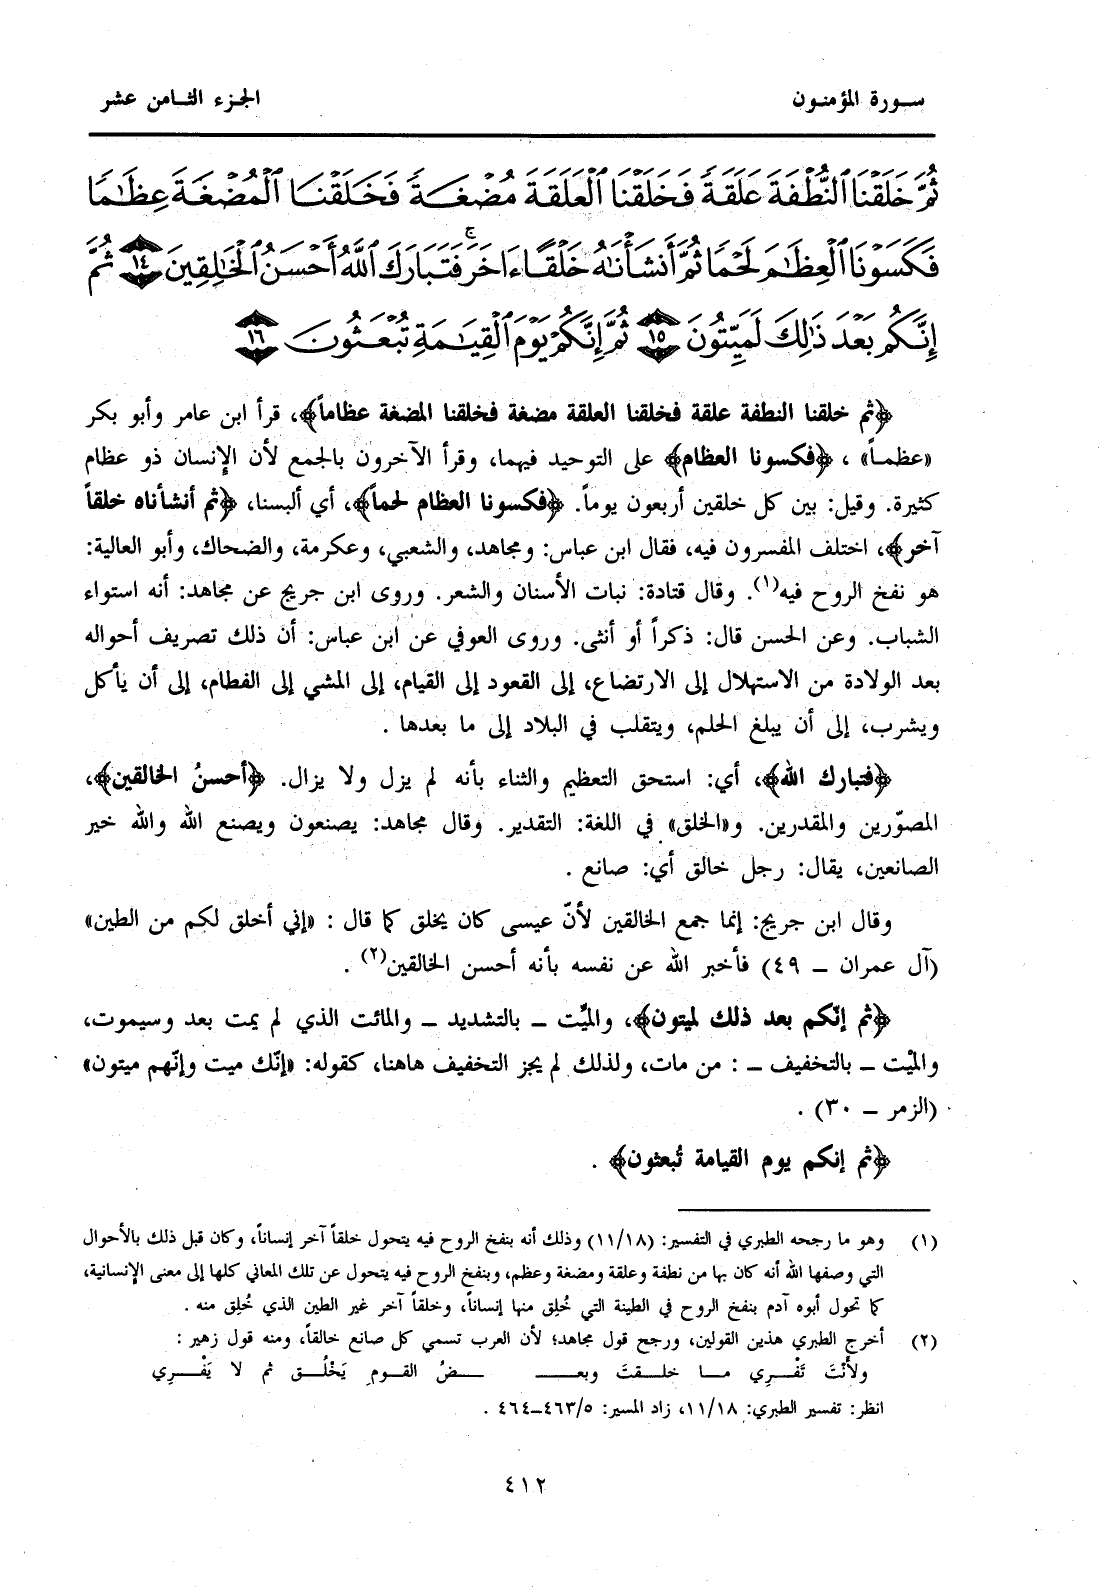 سورة المؤمنون
الجزء الثامن عشر
ثُمَّ خَلَقْنَا ٱلنُّطْفَةَ عَلَقَةً فَخَلَقْنَا ٱلْعَلَقَةَ مُضْغَةً فَخَلَقْنَا ٱلْمُضْغَةَ عِظَٰمًا
فَكَسَوْنَا ٱلْعِظَٰمَ لَحْمًا ثُمَّ أَنشَأْنَٰهُ خَلْقًا ءَاخَرَ ۚ فَتَبَارَكَ ٱللَّهُ أَحْسَنُ ٱلْخَٰلِقِينَ ١٤ ثُمَّ
إِنَّكُم بَعْدَ ذَٰلِكَ لَمَيِّتُونَ ١٥ ثُمَّ إِنَّكُمْ يَوْمَ ٱلْقِيَٰمَةِ تُبْعَثُونَ ١٦
﴿ثم خلقنا النطفة علقة فخلقنا العلقة مضغة فخلقنا المضغة عظاماً﴾، قرأ ابن عامر وأبو بكر
«عظمـاً» ، ﴿فكسونا العظام﴾ على التوحيد فيهما، وقرأ الآخرون بالجمع لأن الإنسان ذو عظام
كثيرة. وقيل: بين كل خلقين أربعون يوماً. ﴿فكسونا العظام لحماً﴾، أي ألبسنا، ﴿ثم أنشأناه خلقاً
آخر﴾، اختلف المفسرون فيه، فقال ابن عباس: ومجاهد، والشعبي، وعكرمة، والضحاك، وأبو العالية:
هو نفخ الروح فيه(١). وقال قتادة: نبات الأسنان والشعر. وروى ابن جريج عن مجاهد: أنه استواء
الشباب. وعن الحسن قال: ذكراً أو أنثى. وروى العوفي عن ابن عباس: أن ذلك تصريف أحواله
بعد الولادة من الاستهلال إلى الارتضاع، إلى القعود إلى القيام، إلى المشي إلى الفطام، إلى أن يأكل
ويشرب، إلى أن يبلغ الحلم، ويتقلب في البلاد إلى ما بعدها .
﴿فتبارك الله﴾، أي: استحق التعظيم والثناء بأنه لم يزل ولا يزال. ﴿أحسنُ الخالقين﴾،
المصوّرين والمقدرين. و«الخلق» في اللغة: التقدير. وقال مجاهد: يصنعون ويصنع الله والله خير
الصانعين، يقال: رجل خالق أي: صانع .
وقال ابن جريج: إنما جمع الخالقين لأنّ عيسى كان يخلق كما قال : «إني أخلق لكم من الطين»
(آل عمران ــ ٤٩) فأخبر الله عن نفسه بأنه أحسن الخالقين(٢) .
﴿ثم إنّكم بعد ذلك لميتون﴾، والميِّت ــ بالتشديد ــ والمائت الذي لم يمت بعد وسيموت،
والميْت ــ بالتخفيف ــ : من مات، ولذلك لم يجز التخفيف هاهنا، كقوله: «إنّك ميت وإنّهم ميتون»
(الزمر ــ ٣٠) .
﴿ثم إنكم يوم القيامة تُبعثون﴾ .
(١) وهو ما رجحه الطبري في التفسير: (١١/١٨) وذلك أنه بنفخ الروح فيه يتحول خلقاً آخر إنساناً، وكان قبل ذلك بالأحوال
التي وصفها الله أنه كان بها من نطفة وعلقة ومضغة وعظم، وبنفخ الروح فيه يتحول عن تلك المعاني كلها إلى معنى الإنسانية،
كما تحول أبوه آدم بنفخ الروح في الطينة التي خُلِق منها إنساناً، وخلقاً آخر غير الطين الذي خُلِق منه .
(٢) أخرج الطبري هذين القولين، ورجح قول مجاهد؛ لأن العرب تسمي كل صانع خالقاً، ومنه قول زهير :
ولأنْتَ تَفْـــري مـــا خلـــقتَ وبعــــ ـــضُ القـــوم يَخْلُـــق ثم لا يَفْـــري
انظر: تفسير الطبري: ١١/١٨، زاد المسير: ٤٦٣/٥ــ٤٦٤ .
٤١٢